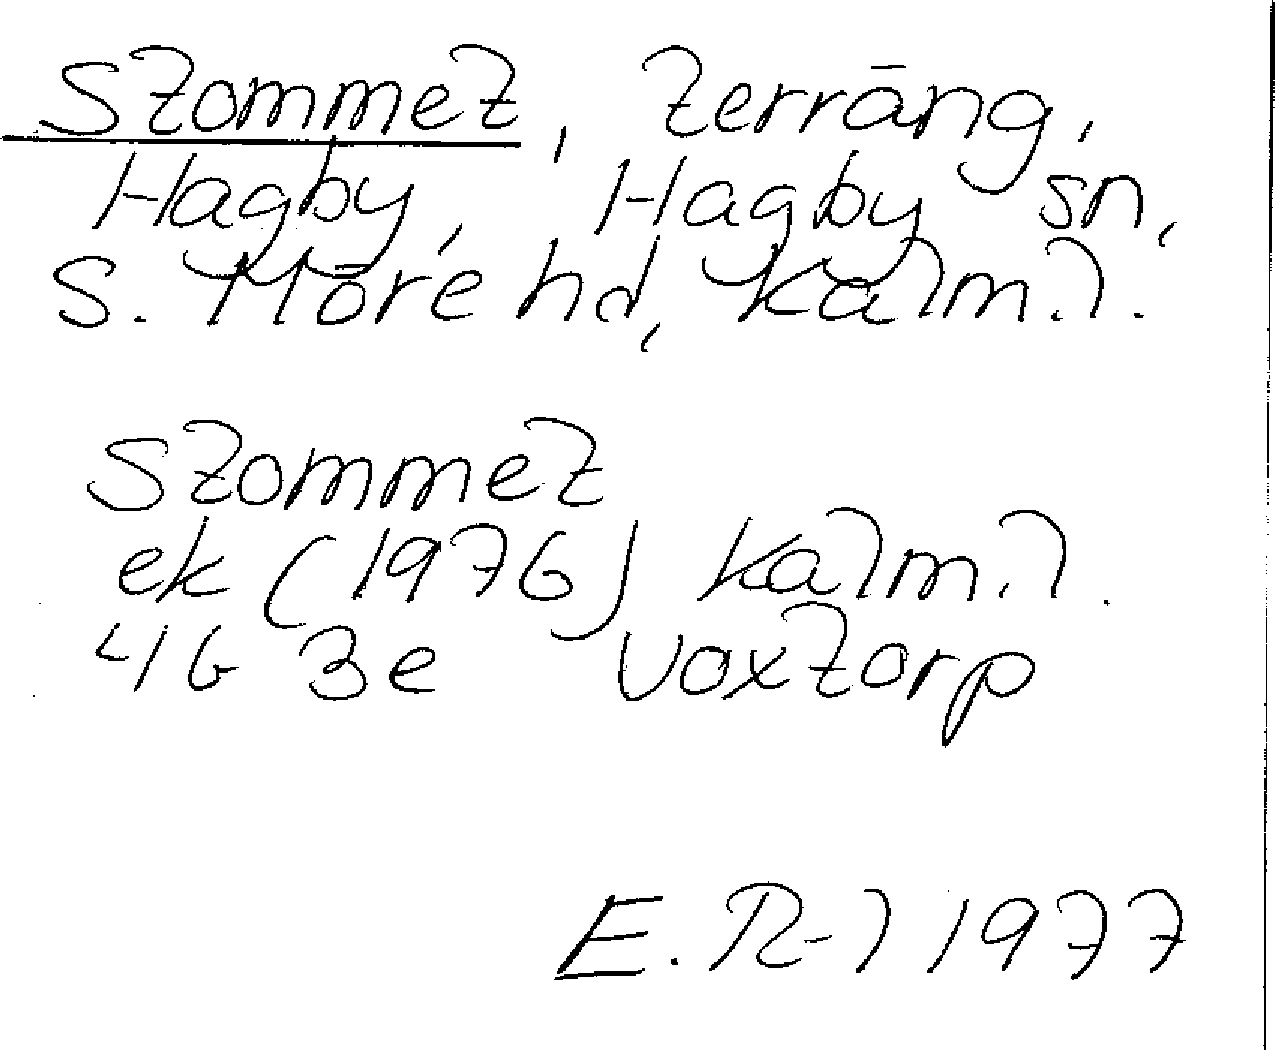 Stommet, terräng,
Hagby, Hagby sn,
S. Möre hd, Kalm. l.
Stommet
ek (1976) Kalm. l.
4G 3e Voxtorp
E. R-l 1977